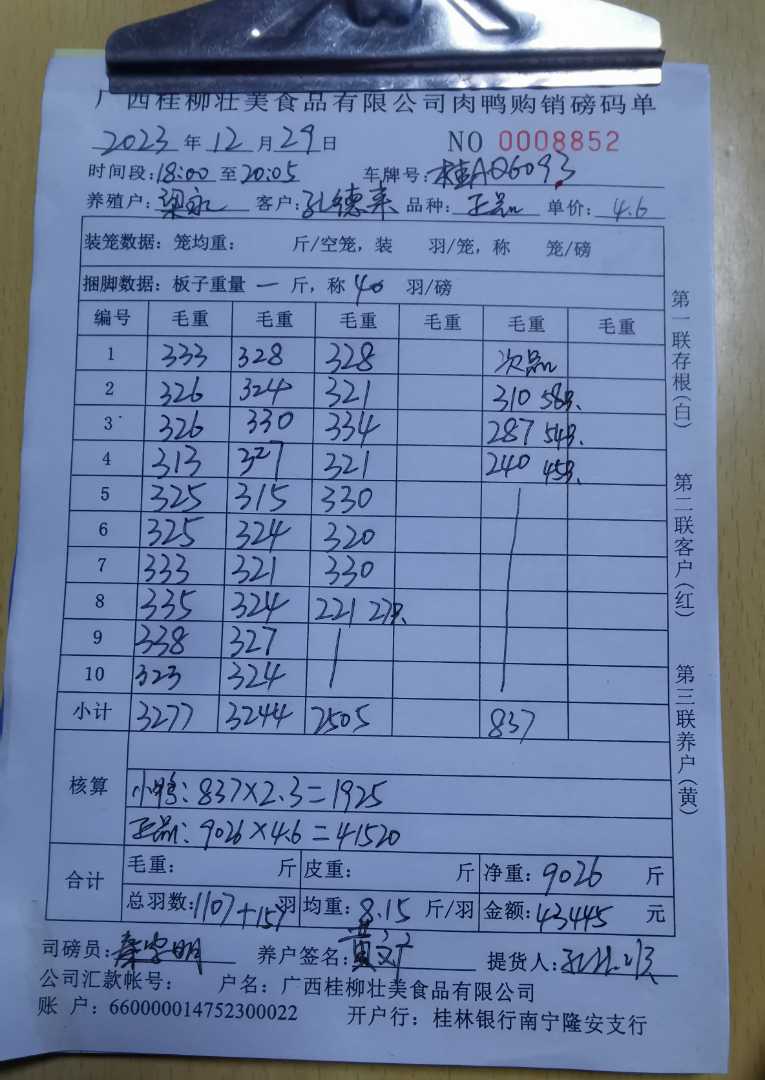 广西桂柳壮美食品有限公司肉鸭购销磅码单
2023 年 12 月 29 日 NO 0008852
时间段:18:00 至 20:05 车牌号:桂AQ6093
养殖户:梁永 客户:孔德来 品种:正品 单价:4.6
装笼数据:笼均重: 斤/空笼,装 羽/笼,称 笼/磅
捆脚数据:板子重量 一 斤,称 40 羽/磅
编号 毛重 毛重 毛重 毛重 毛重 毛重
1 333 328 328 次品
2 326 324 321 310 58只
3 326 330 334 287 54只
4 313 327 321 240 45只
5 325 315 330
6 325 324 320
7 333 321 330
8 335 324 221 27只
9 338 327
10 323 324
小计 3277 3244 2505 837
核算
小鸭:837×2.3=1925
正品:9026×4.6=41520
合计
毛重: 斤 皮重: 斤 净重:9026 斤
总羽数:1107+157羽 均重:8.15 斤/羽 金额:43445 元
司磅员: 养户签名:黄 提货人:
公司汇款帐号: 户名:广西桂柳壮美食品有限公司
账 户:660000014752300022 开户行:桂林银行南宁隆安支行
第一联存根(白)
第二联客户(红)
第三联养户(黄)